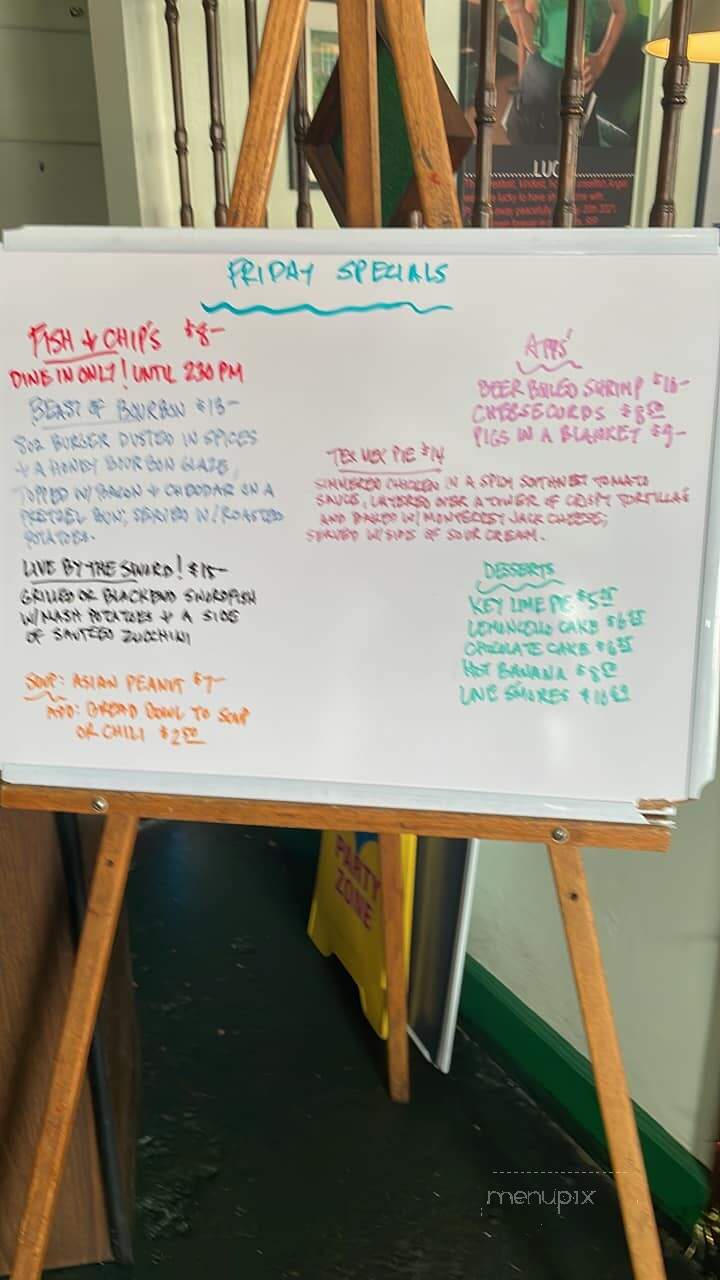 LUC
FRIDAY SPECIALS
FISH & CHIP'S $8-
DINE IN ONLY! UNTIL 230 PM
BEAST OF BOURBON $13-
8OZ BURGER DUSTED IN SPICES
& A HONEY BOURBON GLAZE,
TOPPED W/BACON & CHEDDAR ON A
PRETZEL BUN, SERVED W/ROASTED
POTATOES.
LIVE BY THE SWORD! $15-
GRILLED OR BLACKEND SWORDFISH
W/MASH POTATOES & A SIDE
OF SAUTEED ZUCCHINI
SOUP: ASIAN PEANUT $7-
ADD: BREAD BOWL TO SOUP
OR CHILI $2.50
TEX MEX PIE $14
SIMMERED CHICKEN IN A SPICY SOUTHWEST TOMATO
SAUCE, LAYERED OVER A TOWER OF CRISPY TORTILLAS
AND BAKED W/MONTEREY JACK CHEESE,
SERVED W/SIDE OF SOUR CREAM.
APPS'
BEER BOILED SHRIMP
CHEESE CURDS $8.50
PIGS IN A BLANKET $9-
DESSERTS
KEY LIME PIE
LEMONCELLO CAKE
CHOCOLATE CAKE
HOT BANANA
LAVA SMORES
PARTY
ZONE
menupix